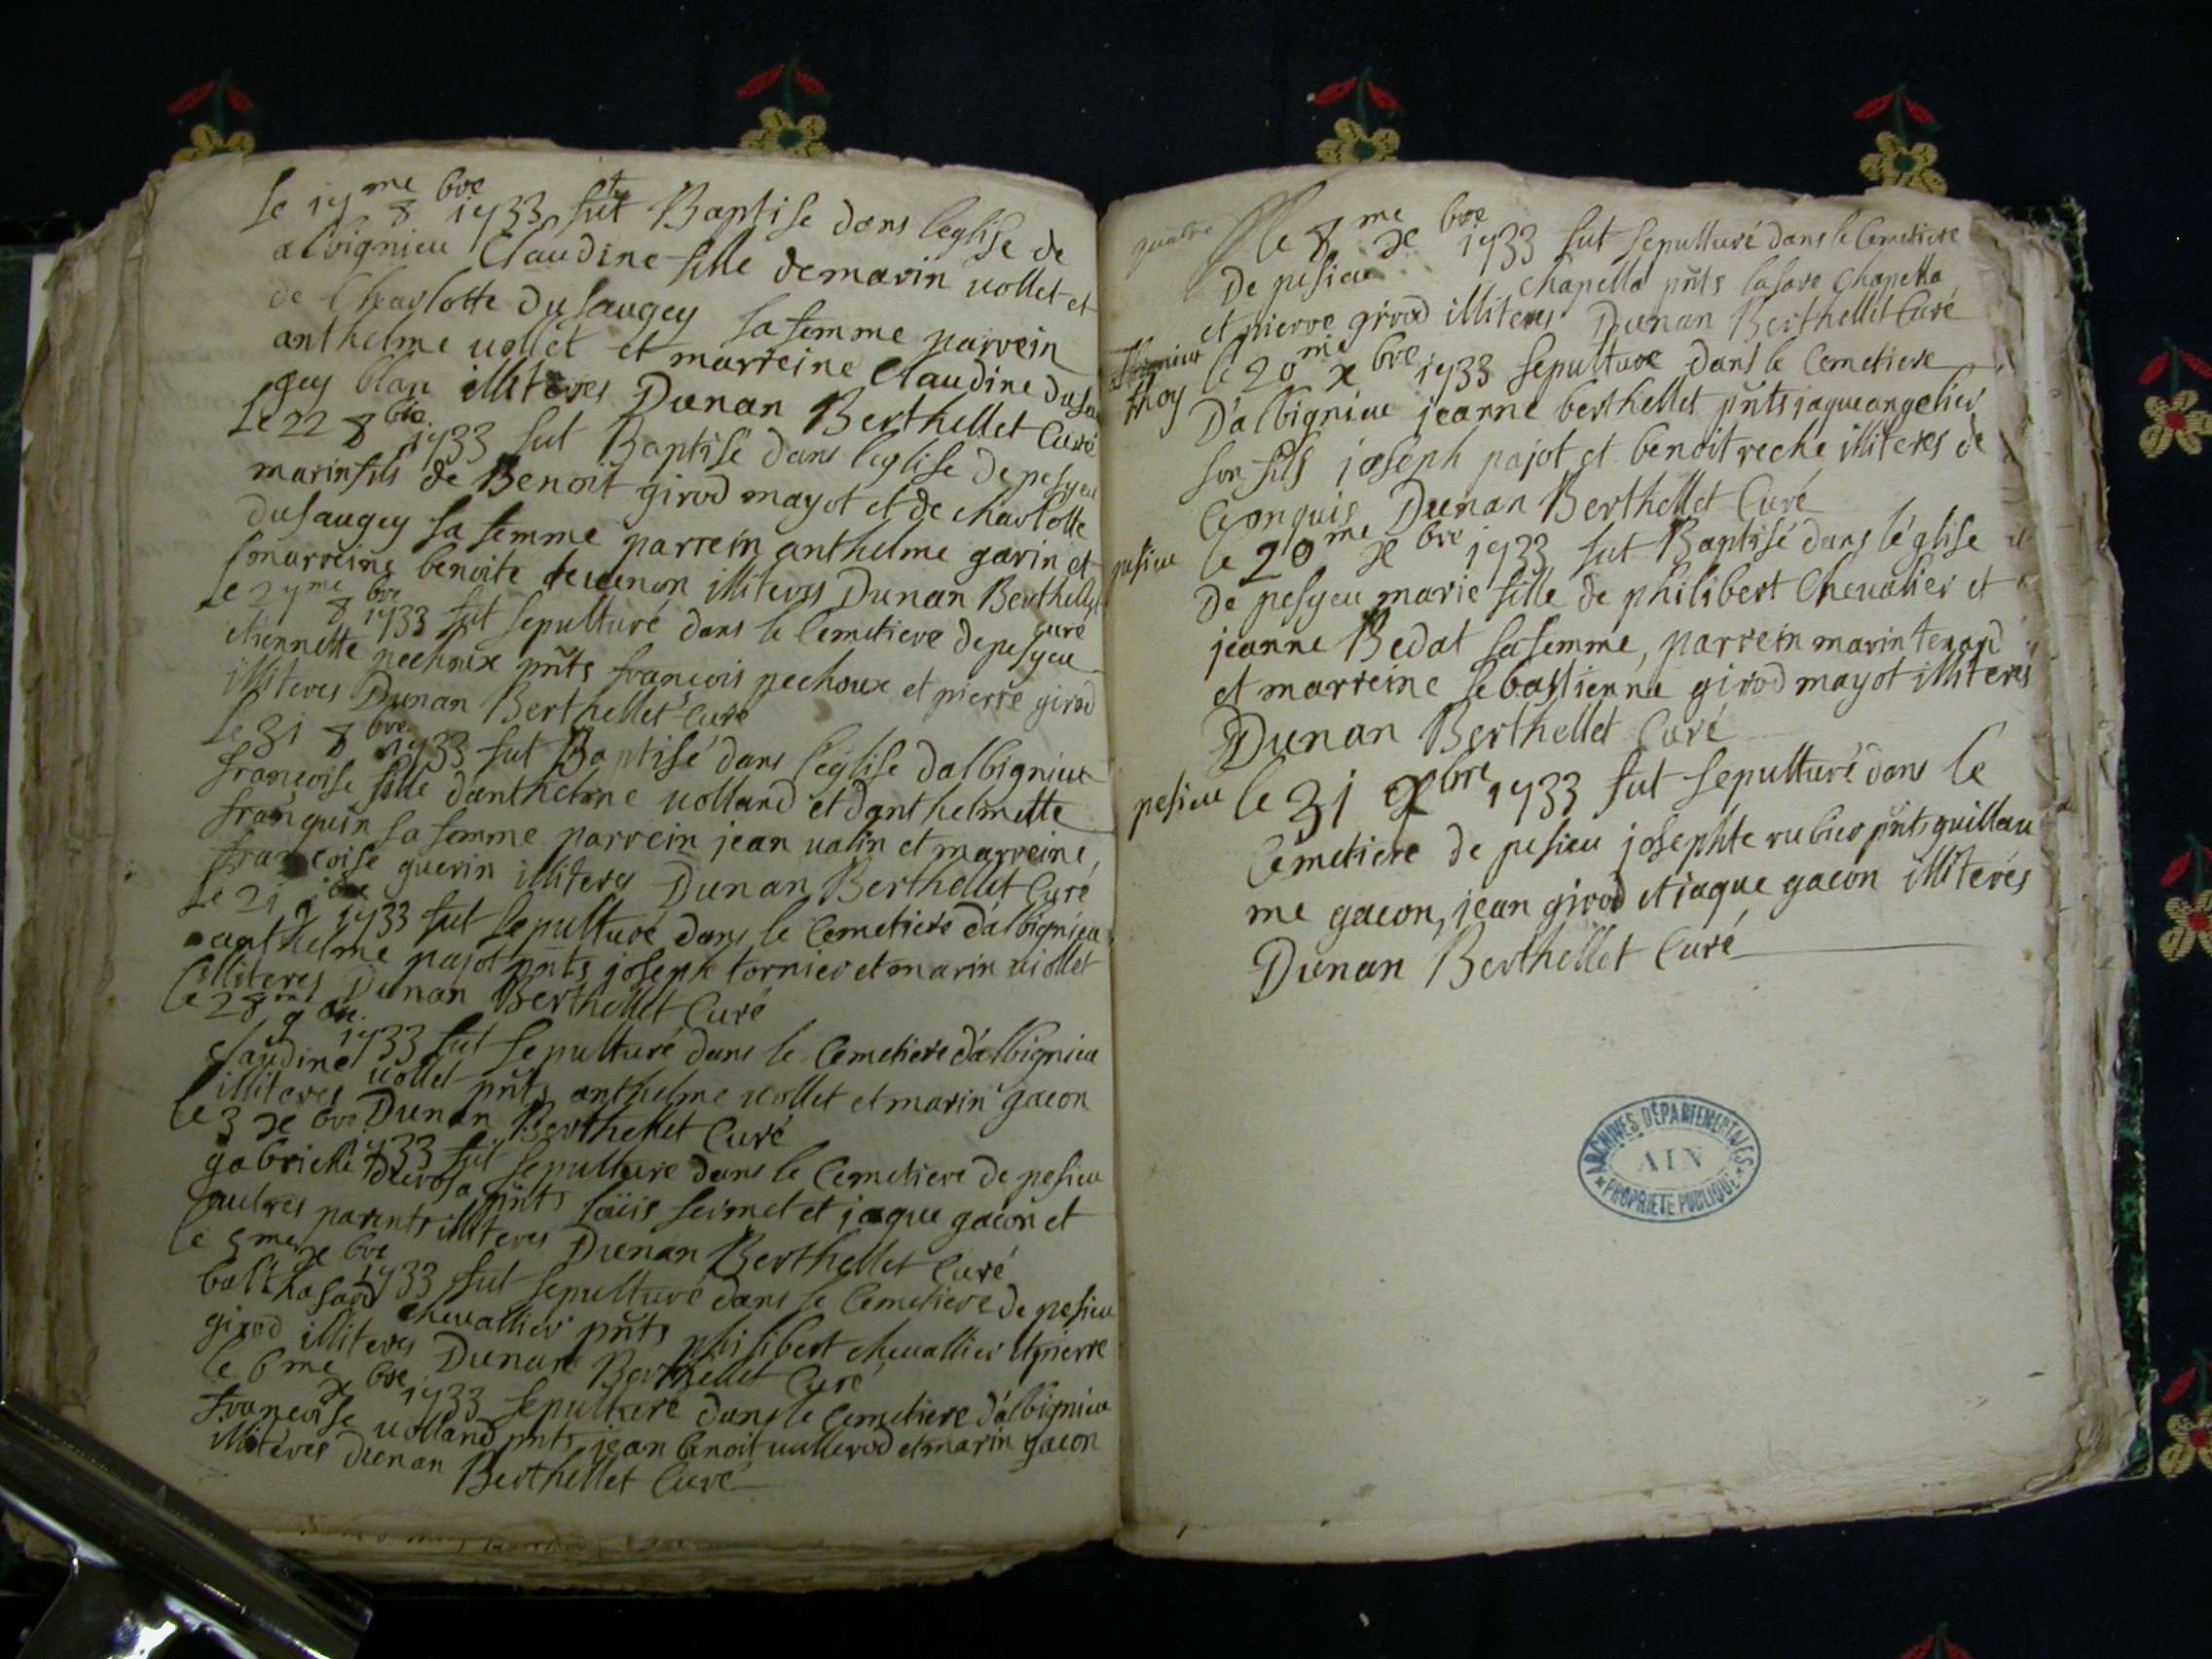 le 17me 8bre 1733 fut Baptise dans leglise de
albignieu Claudine fille de marin uollet et
de Charlotte Dusaugey sa femme parrein
anthelme uollet et marreine Claudine dusau
gey blan illiteres Dunan Berthellet Curé
Le 22 8bre 1733 fut Baptisé dans leglise de pesyeu
marin fils de Benoit girod mayot et de charlotte
dusaugey sa femme parrein anthelme garin et
marreine benoite illiteres Dunan Berthellet
curé
Le 27me 8bre 1733 fut sepulturé dans le Cemetiere de pesyeu
etiennette pechoux pñts françois pechoux et pierre girod
illiteres Dunan Berthellet Curé
Le 31 8bre 1733 fut Baptisé dans l'église dalbignieu
françoise fille danthelme uolland et danthelmette
franquin sa femme parrein jean ualin et marreine
françoise guerin illiteres Dunan Berthellet Curé
Le 21 1733 fut sepulturé dans le Cemetiere d'albignieu
anthelme pajot pñts joseph tornier et marin uiollet
illiteres Dunan Berthellet Curé
Le 28me 9bre 1733 fut sepulturé dans le Cemetiere d'albignieu
Claudine uollet pñts anthelme uollet et marin gacon
illiteres Dunan Berthellet Curé
le 3 xbre 1733 fut sepulture dans le Cemetiere de pesieu
gabrielle pñts loüis seimet et jaque gacon et
autres parents illiteres Dunan Berthellet Curé
le 5me xbre 1733 fut sepulturé dans le Cemetiere de pesieu
balthasard cheuallier pñts philibert cheuallier et pierre
girod illiteres Dunan Berthellet Curé
le 6me xbre 1733 sepulture dans le Cemetiere d'albignieu
françoise uolland pñts jean benoit uullerod et marin gacon
illitéres Dunan Berthellet Curé
le 8me xbre 1733 fut sepulturé dans le Cemetiere
De pesieu Chapella pñts lasare Chapella
et pierre girod illiteres Dunan Berthellet Curé
le 20me xbre 1733 sepulture dans le Cemetiere
D'albignieu jeanne berthellet pñts jaque angelier
son fils joseph pajot et benoit reche illiteres de
Ce enquis Dunan Berthellet Curé
pesieu le 20me xbre 1733 fut Baptisé dans l'église
de pesyeu marie fille de philibert Cheualier et
jeanne Bedat sa femme, parrein marin tenand
et marreine sebastienne girod mayot illiteres
Dunan Berthellet Curé
pesieu le 31 xbre 1733 fut sepulturé dans le
Cemetiere de pesieu josephte rubier pñts guillau
me gacon, jean girod et jaque gacon illiterés
Dunan Berthellet Curé
ARCHIVES DÉPARTEMENTALES
AIN
PROPRIÉTÉ PUBLIQUE